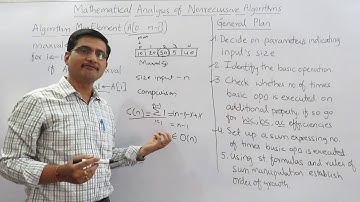 Mathematical Analysis of Nonrecursive Algorithms
Algorithm MaxElement (A[0 n-1])
maxval
for i←
if
10 20 30 5 40
Maxval
input size - n
Comparison
C(n) = Σ 1
i=1
= n-1
∈ O(n)
General Plan
1. Decide on parameters indicating
input's size
2. Identify the basic operation
3. Check whether no of times
basic opn is executed on
additional property, if so go
for WC, BC, AC efficiencies
4. Set up a sum expressing no
of times basic opn is executed
5. Using st formulas and rules of
sum manipulation establish
order of growth